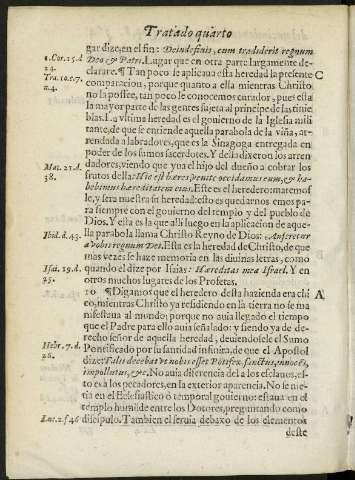 Tratado quarto
gar dize, en el fin: Deinde finis, cum tradiderit regnum
1. Cor. 15. d
24.
Deo & Patri. Lugar que en otra parte largamente de-
Tra. 10. c. 7.
n. 4.
clararè. ¶ Tan poco se aplicaua esta heredad la presente C
comparacion, porque quanto a ella mientras Christo
no la posee, tan poco le conocemos curador, pues està
la mayor parte de las gentes sujeta al principe de las tinie
blas. La vltima heredad es el gouierno de la Iglesia mili
tante, de que se entiende aquella parabola de la viña, ar-
rendada a labradores, que es la Sinagoga entregada en
poder de los sumos sacerdotes. Y dessadixeron los arren
Mat. 21. d.
38.
dadores, viendo que yua el hijo del dueño a cobrar los
frutos della: Hic est hæres, venite occidamus eum, & ha-
bebimus hæreditatem eius. Este es el heredero: matemos
le, y sera nuestra su heredad: esto es quedarnos emos pa-
ra siempre con el gouierno del templo y del pueblo de
Dios. Y esta es la que alli luego en la aplicacion de aque-
Ibid. d. 43.
lla parabola llama Christo Reyno de Dios: Auferetur
à vobis regnum Dei. Esta es la heredad de Christo, de que
mas vezes se haze memoria en las diuinas letras, como
Isai. 19. d.
25.
quando el dize por Isaias: Hæreditas mea Israel. Y en
otros muchos lugares de los Profetas.
10 ¶ Digamos que el heredero desta hazienda era chi A
co, mientras Christo ya residiendo en la tierra no se ma
nifestaua al mundo; porque no auia llegado el tiempo
que el Padre para ello auia señalado: y siendo ya de de-
recho señor de aquella heredad, deuiendosele el Sumo
Hebr. 7. d.
26.
Pontificado por su santidad infinita, de que el Apostol
dize: Talis decebat vt nobis esset Pontifex, sanctus, innocēs,
impollutus, &c. No auia diferencia del a los esclauos, es-
to es a los pecadores, en la exterior aparencia. No se me-
tia en el Eclesiastico ò temporal gouierno: estaua en el
templo humilde entre los Dotores, preguntando como
Luc. 2. f 46
dicipulo. Tambien el seruia debaxo de los elementos
deste